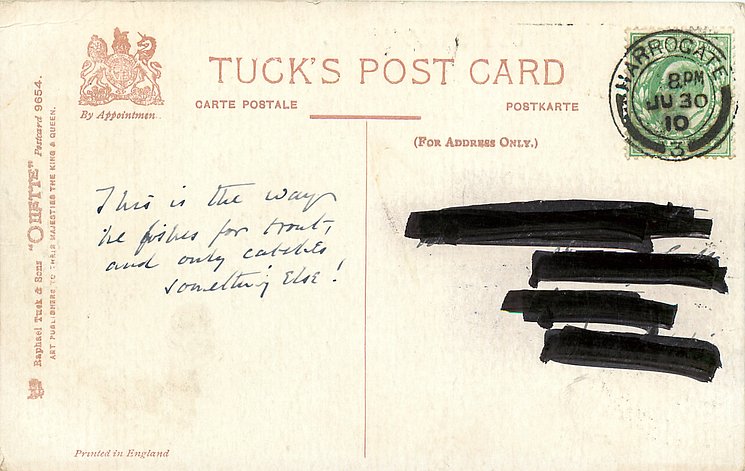 TUCK'S POST CARD
CARTE POSTALE
POSTKARTE
By Appointment.
(FOR ADDRESS ONLY.)
HARROGATE
8 PM
JU 30
10
3
This is the way
he fishes for trout,
and only catches
something Else!
Raphael Tuck & Sons "OILETTE" Postcard 9654.
ART PUBLISHERS TO THEIR MAJESTIES THE KING & QUEEN.
Printed in England